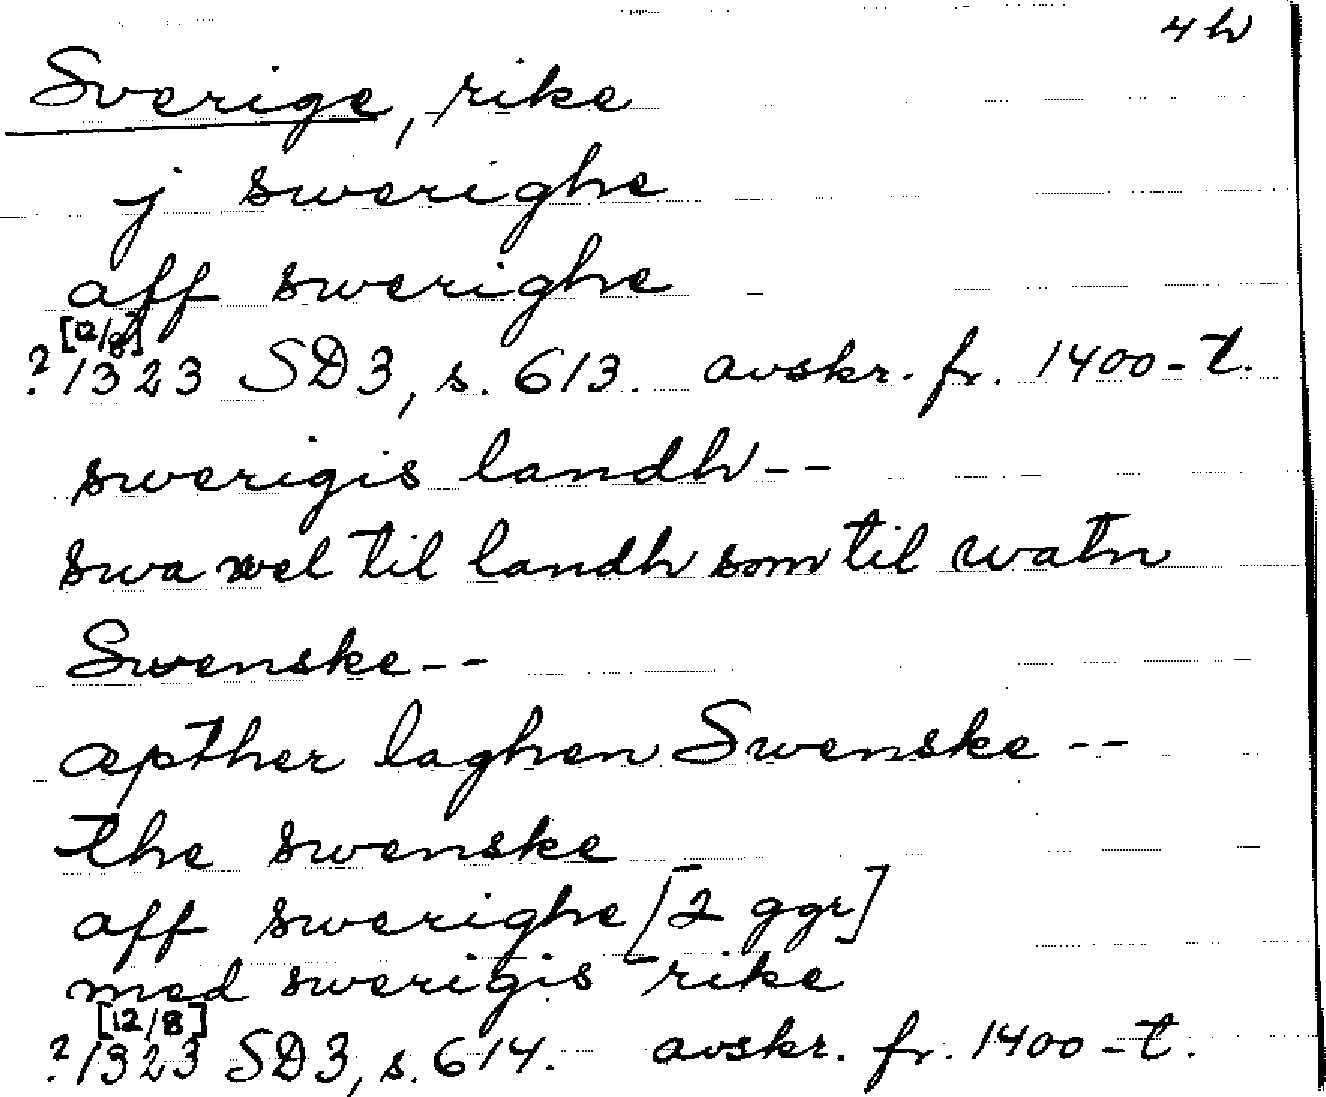 4 h
Sverige, rike
j swerighe
aff swerighe
[12/8]
? 1323 SD3, s. 613. avskr. fr. 1400-t.
swerigis landh--
swa wel til landh som til watn
Swenske--
æpther laghen Swenske--
the swenske
aff swerighe [2 ggr]
med swerigis rike
[12/8]
? 1323 SD3, s. 614. avskr. fr. 1400-t.